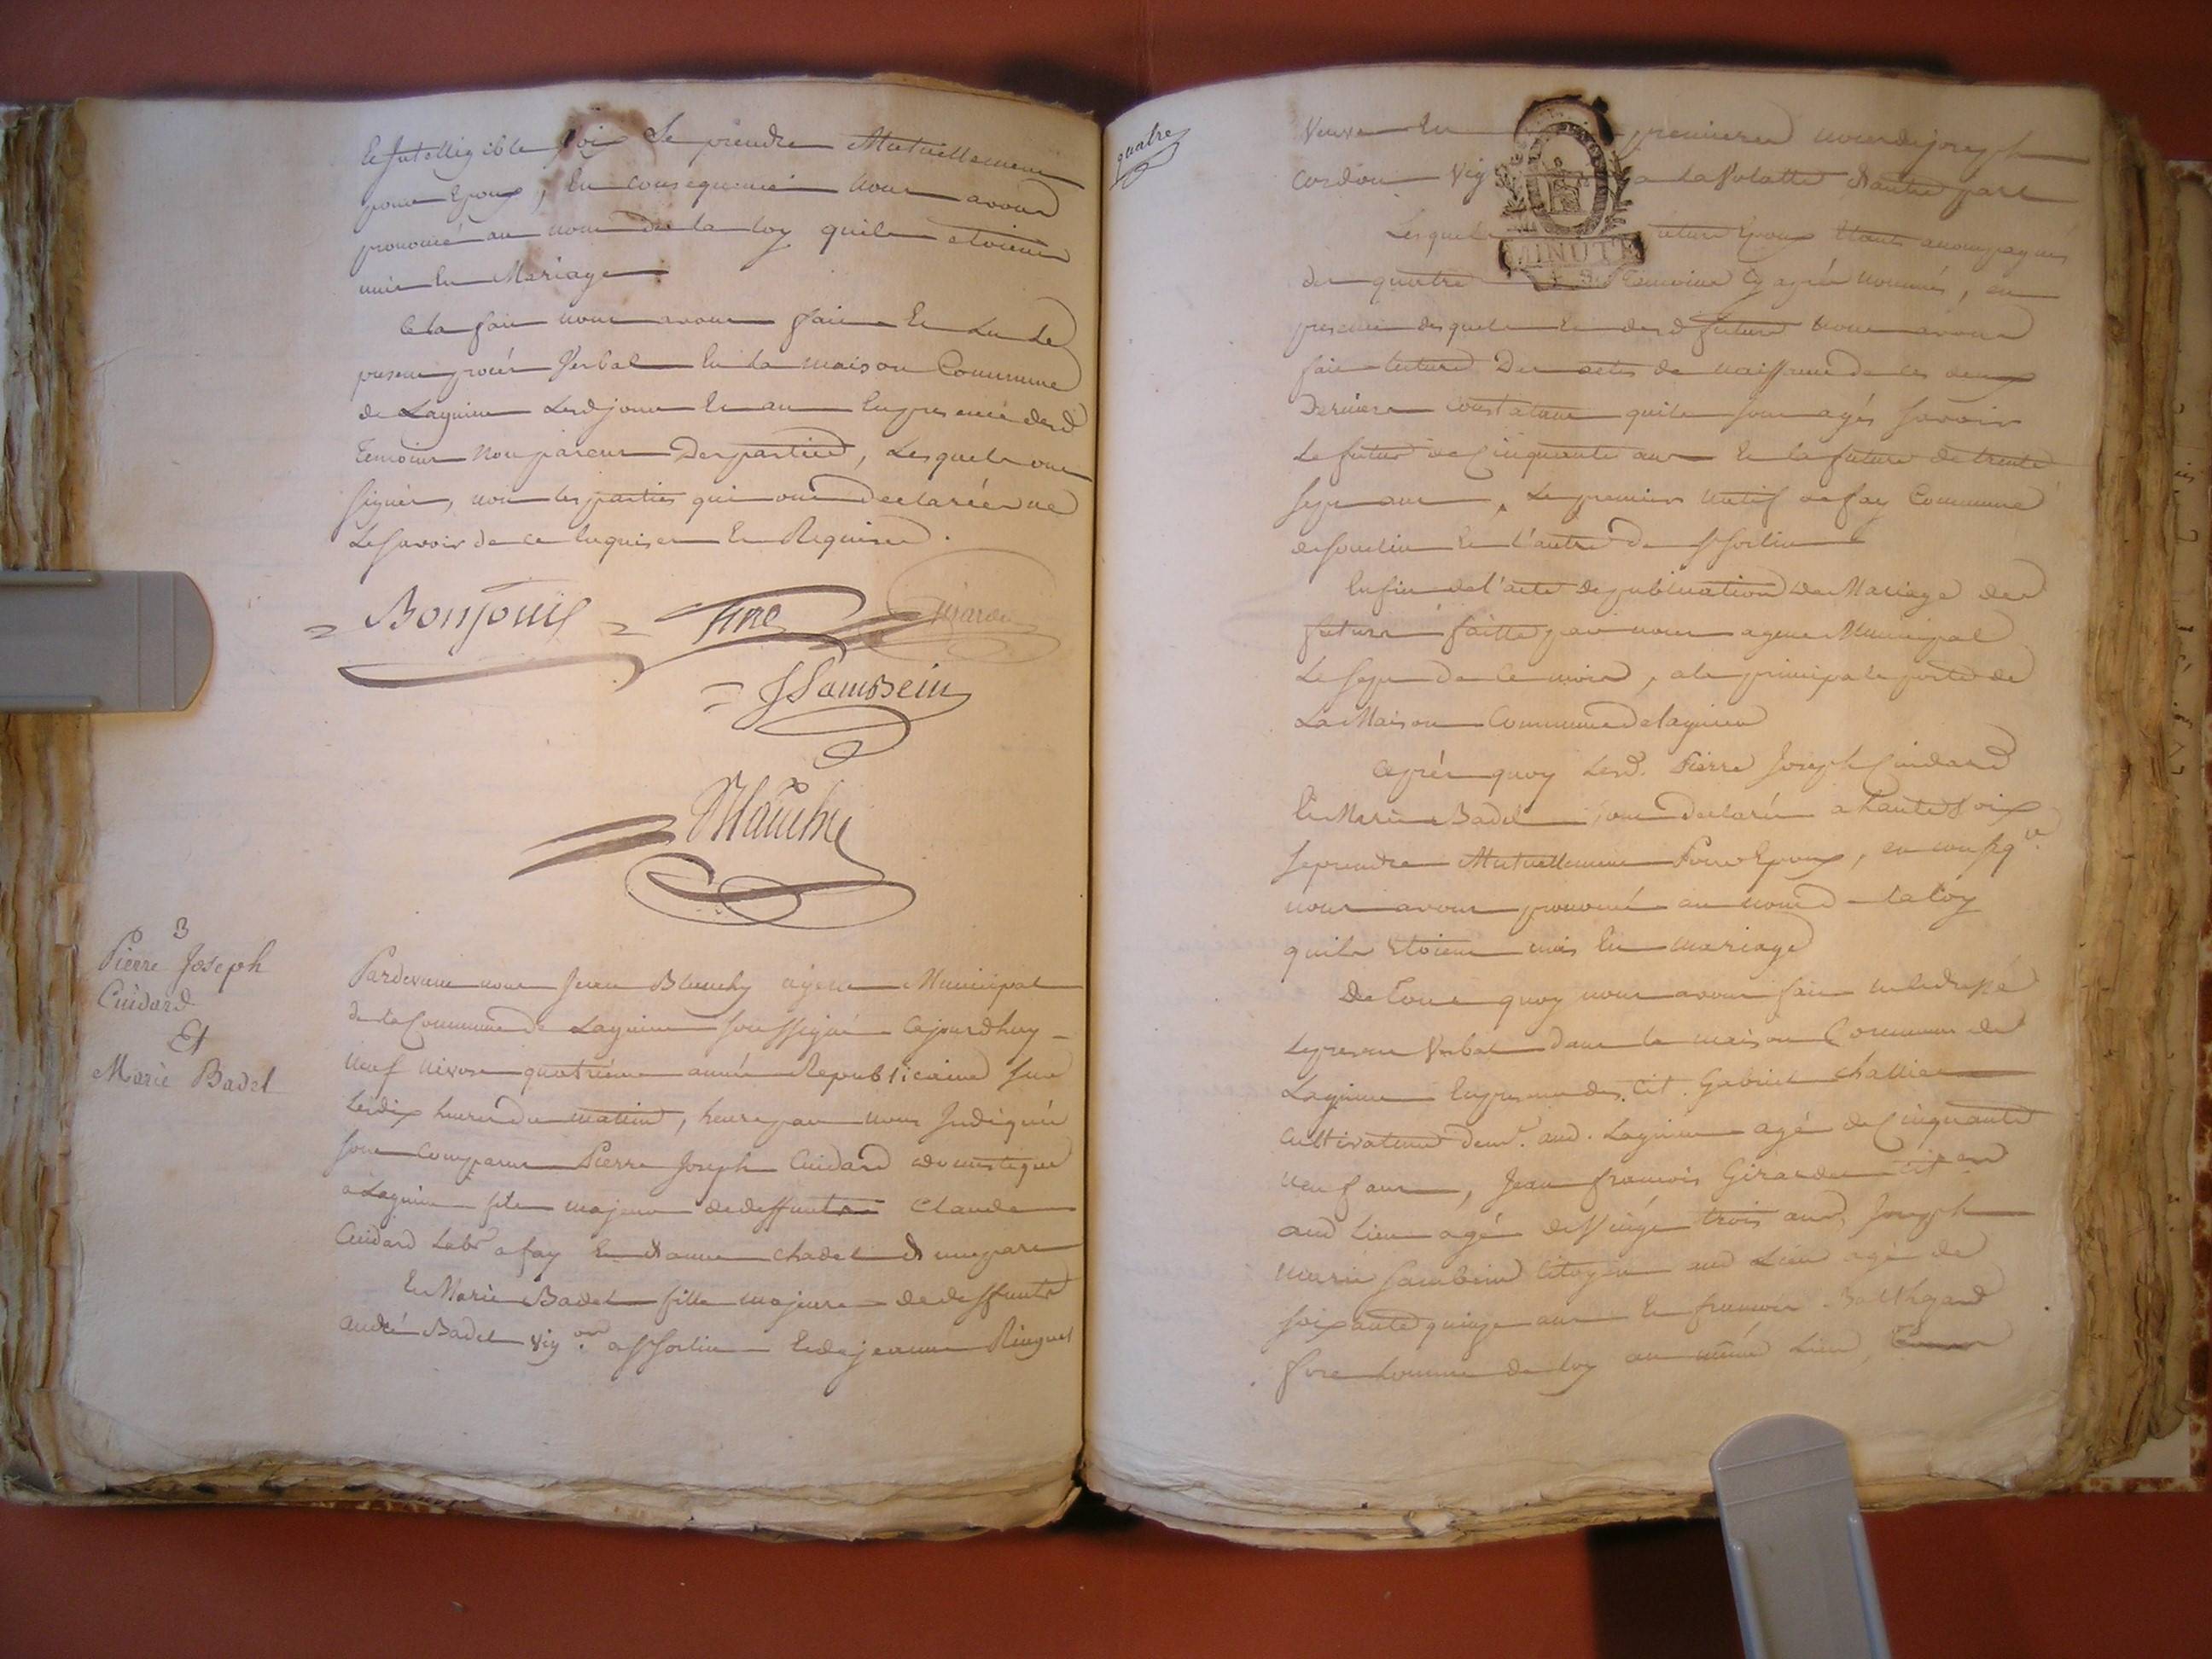 et Intelligible voix Se prendre Mutuellement
pour Epoux, En consequence nous avons
prononcé au nom de la loy quils etoient
unis En Mariage
Cela fait nous avons fait et Lu Le
present procés Verbal En la maison Commune
de Lagnieu Lesd jour et an En presence desd
temoins Non parens Des parties, Lesquels ont
signés, non les parties qui ont declarées ne
Le savoir de ce Enquises et Requises.
Bonjour fine Girardet
J Sambein
Blanchy
3
Pierre Joseph
Cuidard
Et
Marie Badel
Pardevant nous Jean Blanchy agent Municipal
de la Commune de Lagnieu soussigné Cejourdhuy
neuf nivose quatrieme année Republicaine sur
Les dix heures du matin, heure par nous Indiquée
sont Comparus Pierre Joseph Cuidard domestique
a Lagnieu fils majeur de deffunts Claude
Cuidard Labr a fay Et danne chadel d'une part
Et Marie Badel fille majeure de deffunts
André Badel Vig.on a St Sorlin Et de jeanne Ringuet
quatre
Veuve En premieres noces de joseph
Cordon Vig a la Solatte d'autre part
Lesquels futurs Epoux Etants accompagnés
de quatre Temoins cy aprés nommés, en
presence desquels Et desd futurs nous avons
fait lecture Des actes de naissance de ces deux
Derniers constatant quils sont agés savoir
Le futur de Cinquante ans Et la future de trente
sept ans, Le premier natif de fay Commune
de souclin Et l'autre de St Sorlin
Enfin de l'acte de publication de Mariage des
futurs faitte par nous agent Municipal
Le sept de ce mois, a la principale porte de
La Maison Commune de lagnieu
Aprés quoy Lesd. Pierre Joseph Cuidard
Et Marie Badel ont declarés a haute Voix
se prendre Mutuellement Pour Epoux, en consq.ce
nous avons prononcé au nom de la loy
quils Etoient unis En mariage
De Tout quoy nous avons fait et redigé
Le present Verbal dans la maison Commune de
Lagnieu En presence des Cit. Gabriel challier
Cultivateur demt. aud. Lagnieu agé de Cinquante
neuf ans, Jean francois Girardet cit.en
aud Lieu agé de Vingt trois ans, Joseph
marie Sambein Citoyen aud Lieu agé de
soixante quinze ans Et francois Balthazard
fine homme de loy au même Lieu,